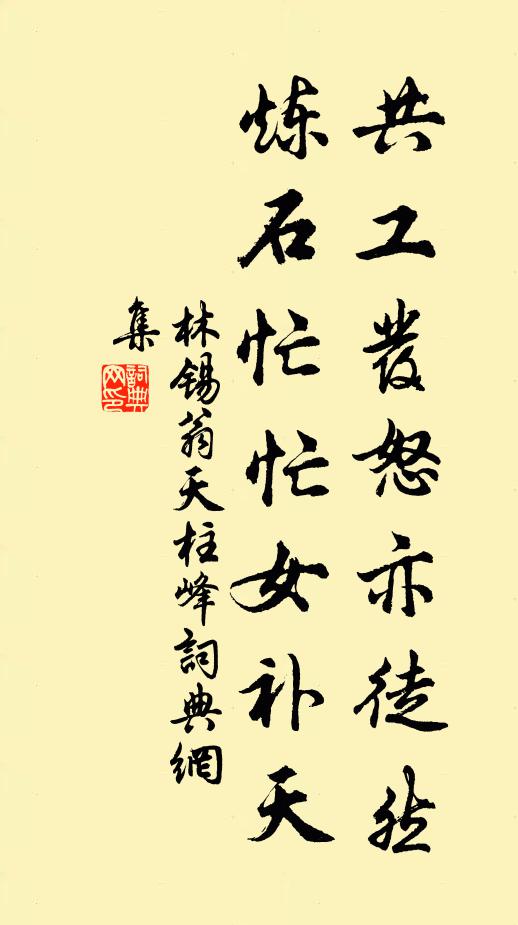 共工發怒亦徒然
炼石忙忙女补天
林锡翁天柱峰詞典網
集
詞典
网印